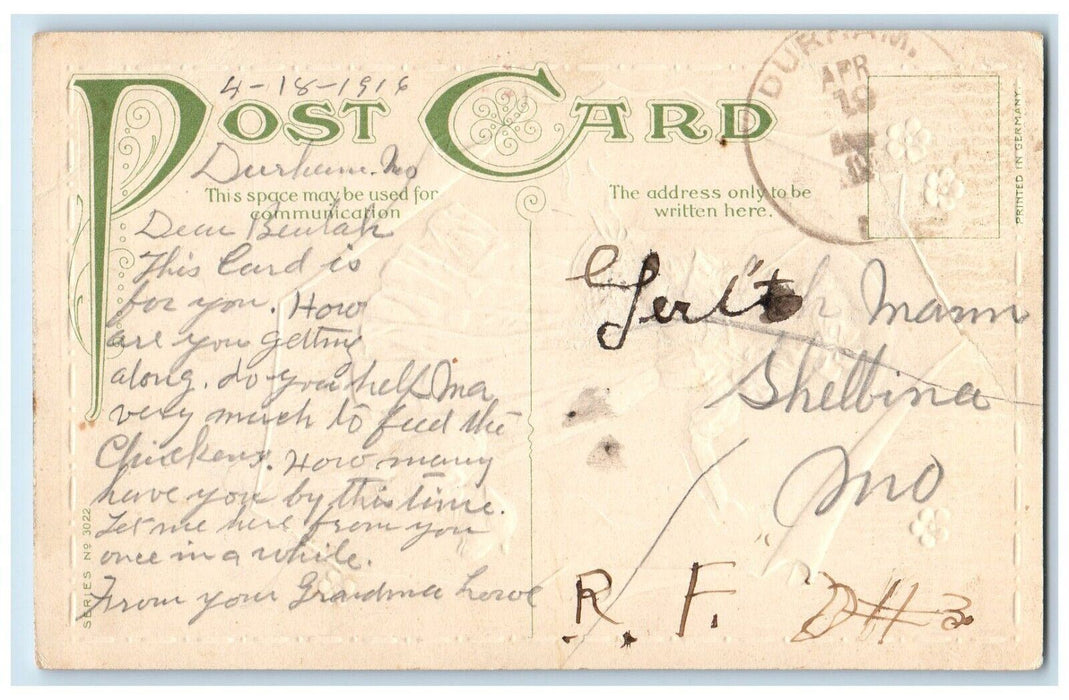 4-18-1916
POST CARD
DURHAM.
APR
Durham. Mo
This space may be used for
communication
The address only to be
written here.
PRINTED IN GERMANY
Dear Beulah
This Card is
for you. How
are you getting
along. do you help Ma
very much to feed the
Chickens. How many
have you by this time.
Let me here from you
once in a while.
From your Grandma Lowe
Mann
Shelbina
Mo
R. F. D # 3
SERIES No 3022